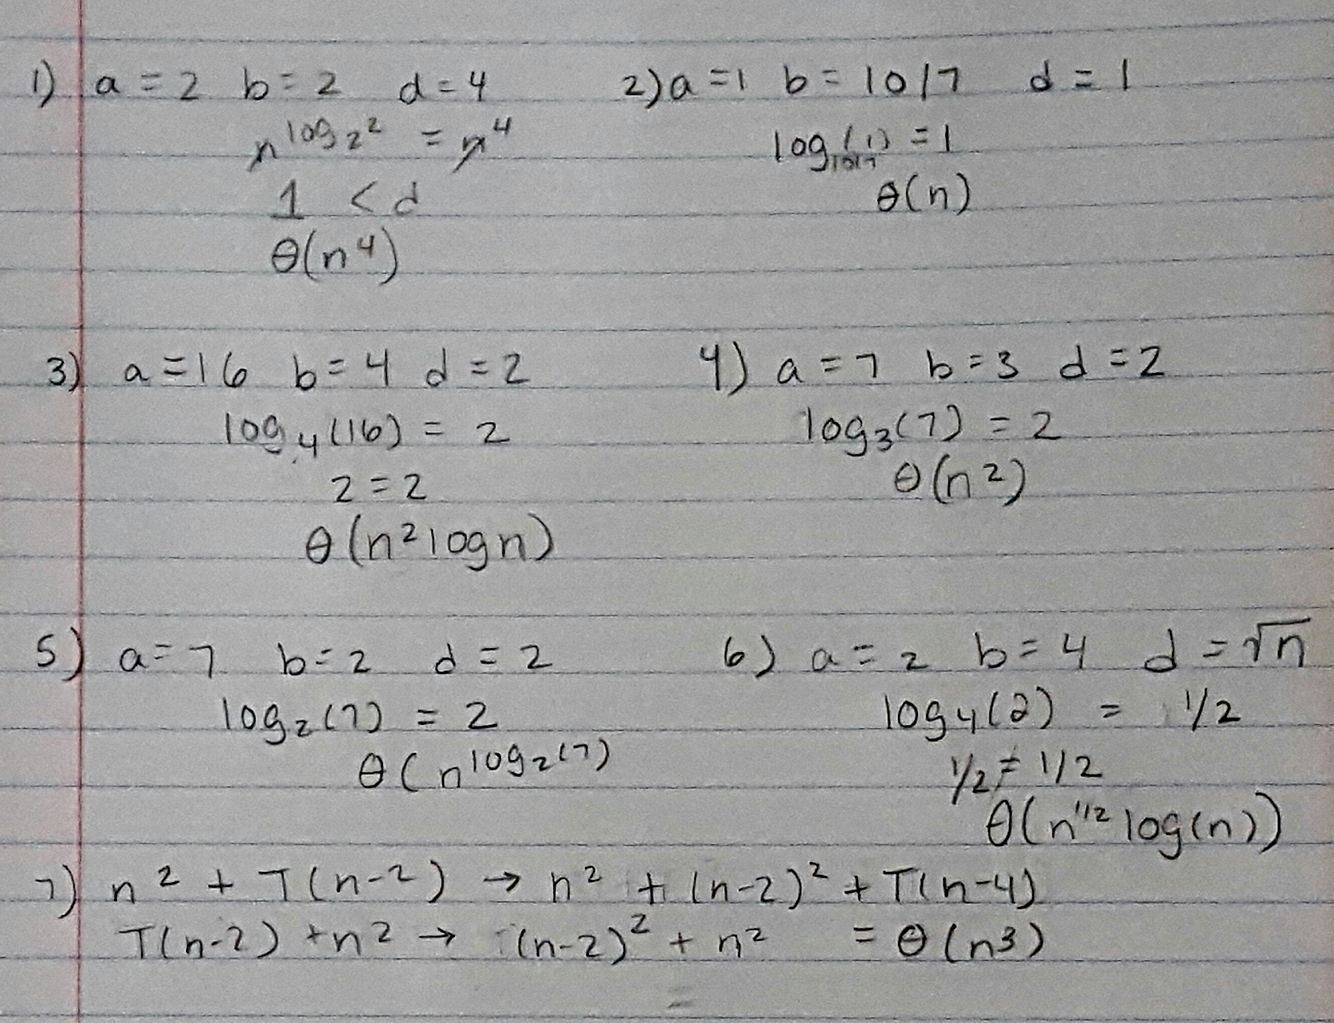 1) a = 2 b = 2 d = 4
n^log₂2 = n^4
1 < d
θ(n^4)
2) a = 1 b = 10/7 d = 1
log₁₀/₇(1) = 1
θ(n)
3) a = 16 b = 4 d = 2
log₄(16) = 2
2 = 2
θ(n² log n)
4) a = 7 b = 3 d = 2
log₃(7) = 2
θ(n²)
5) a = 7 b = 2 d = 2
log₂(7) = 2
θ(n^log₂(7)
6) a = 2 b = 4 d = √n
log₄(2) = 1/2
1/2 = 1/2
θ(n^1/2 log(n))
7) n² + T(n-2) → n² + (n-2)² + T(n-4)
T(n-2) + n² → (n-2)² + n² = θ(n3)